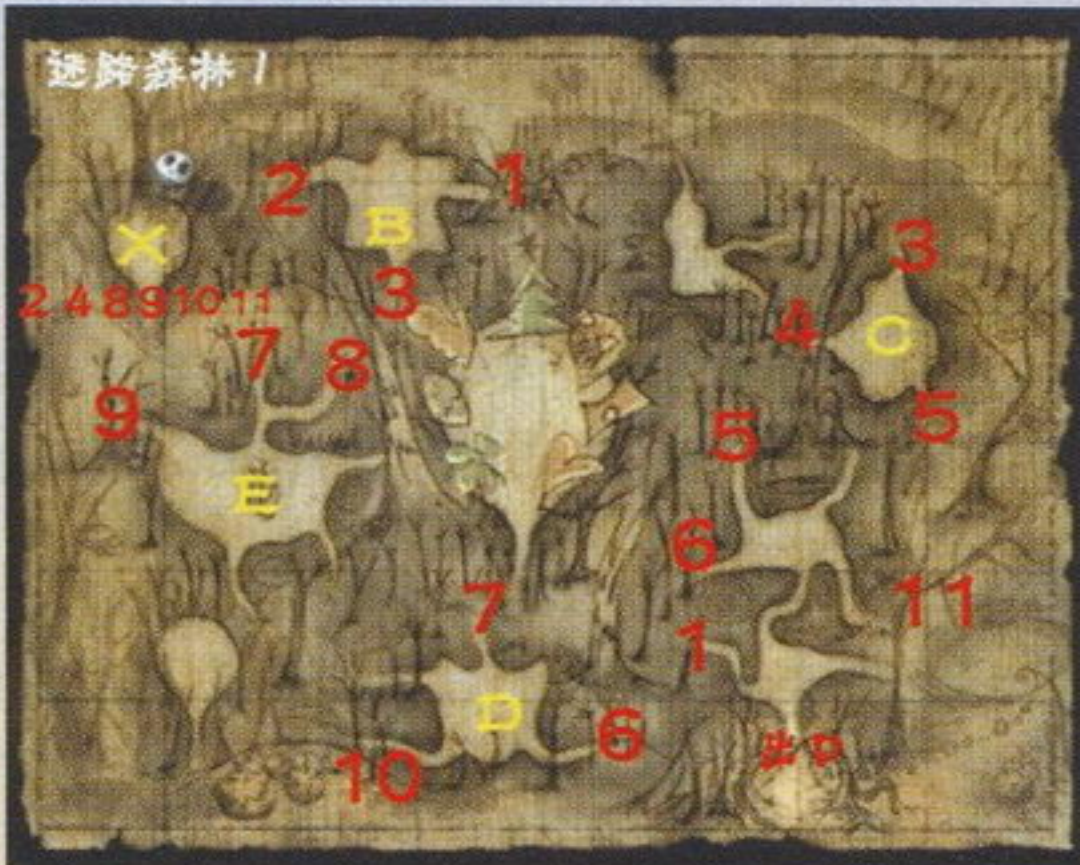 迷路森林 1
2
1
B
X
3
3
2 4 8 9 10 11
4
C
7
8
9
5
5
E
6
7
11
1
D
6
10
出口